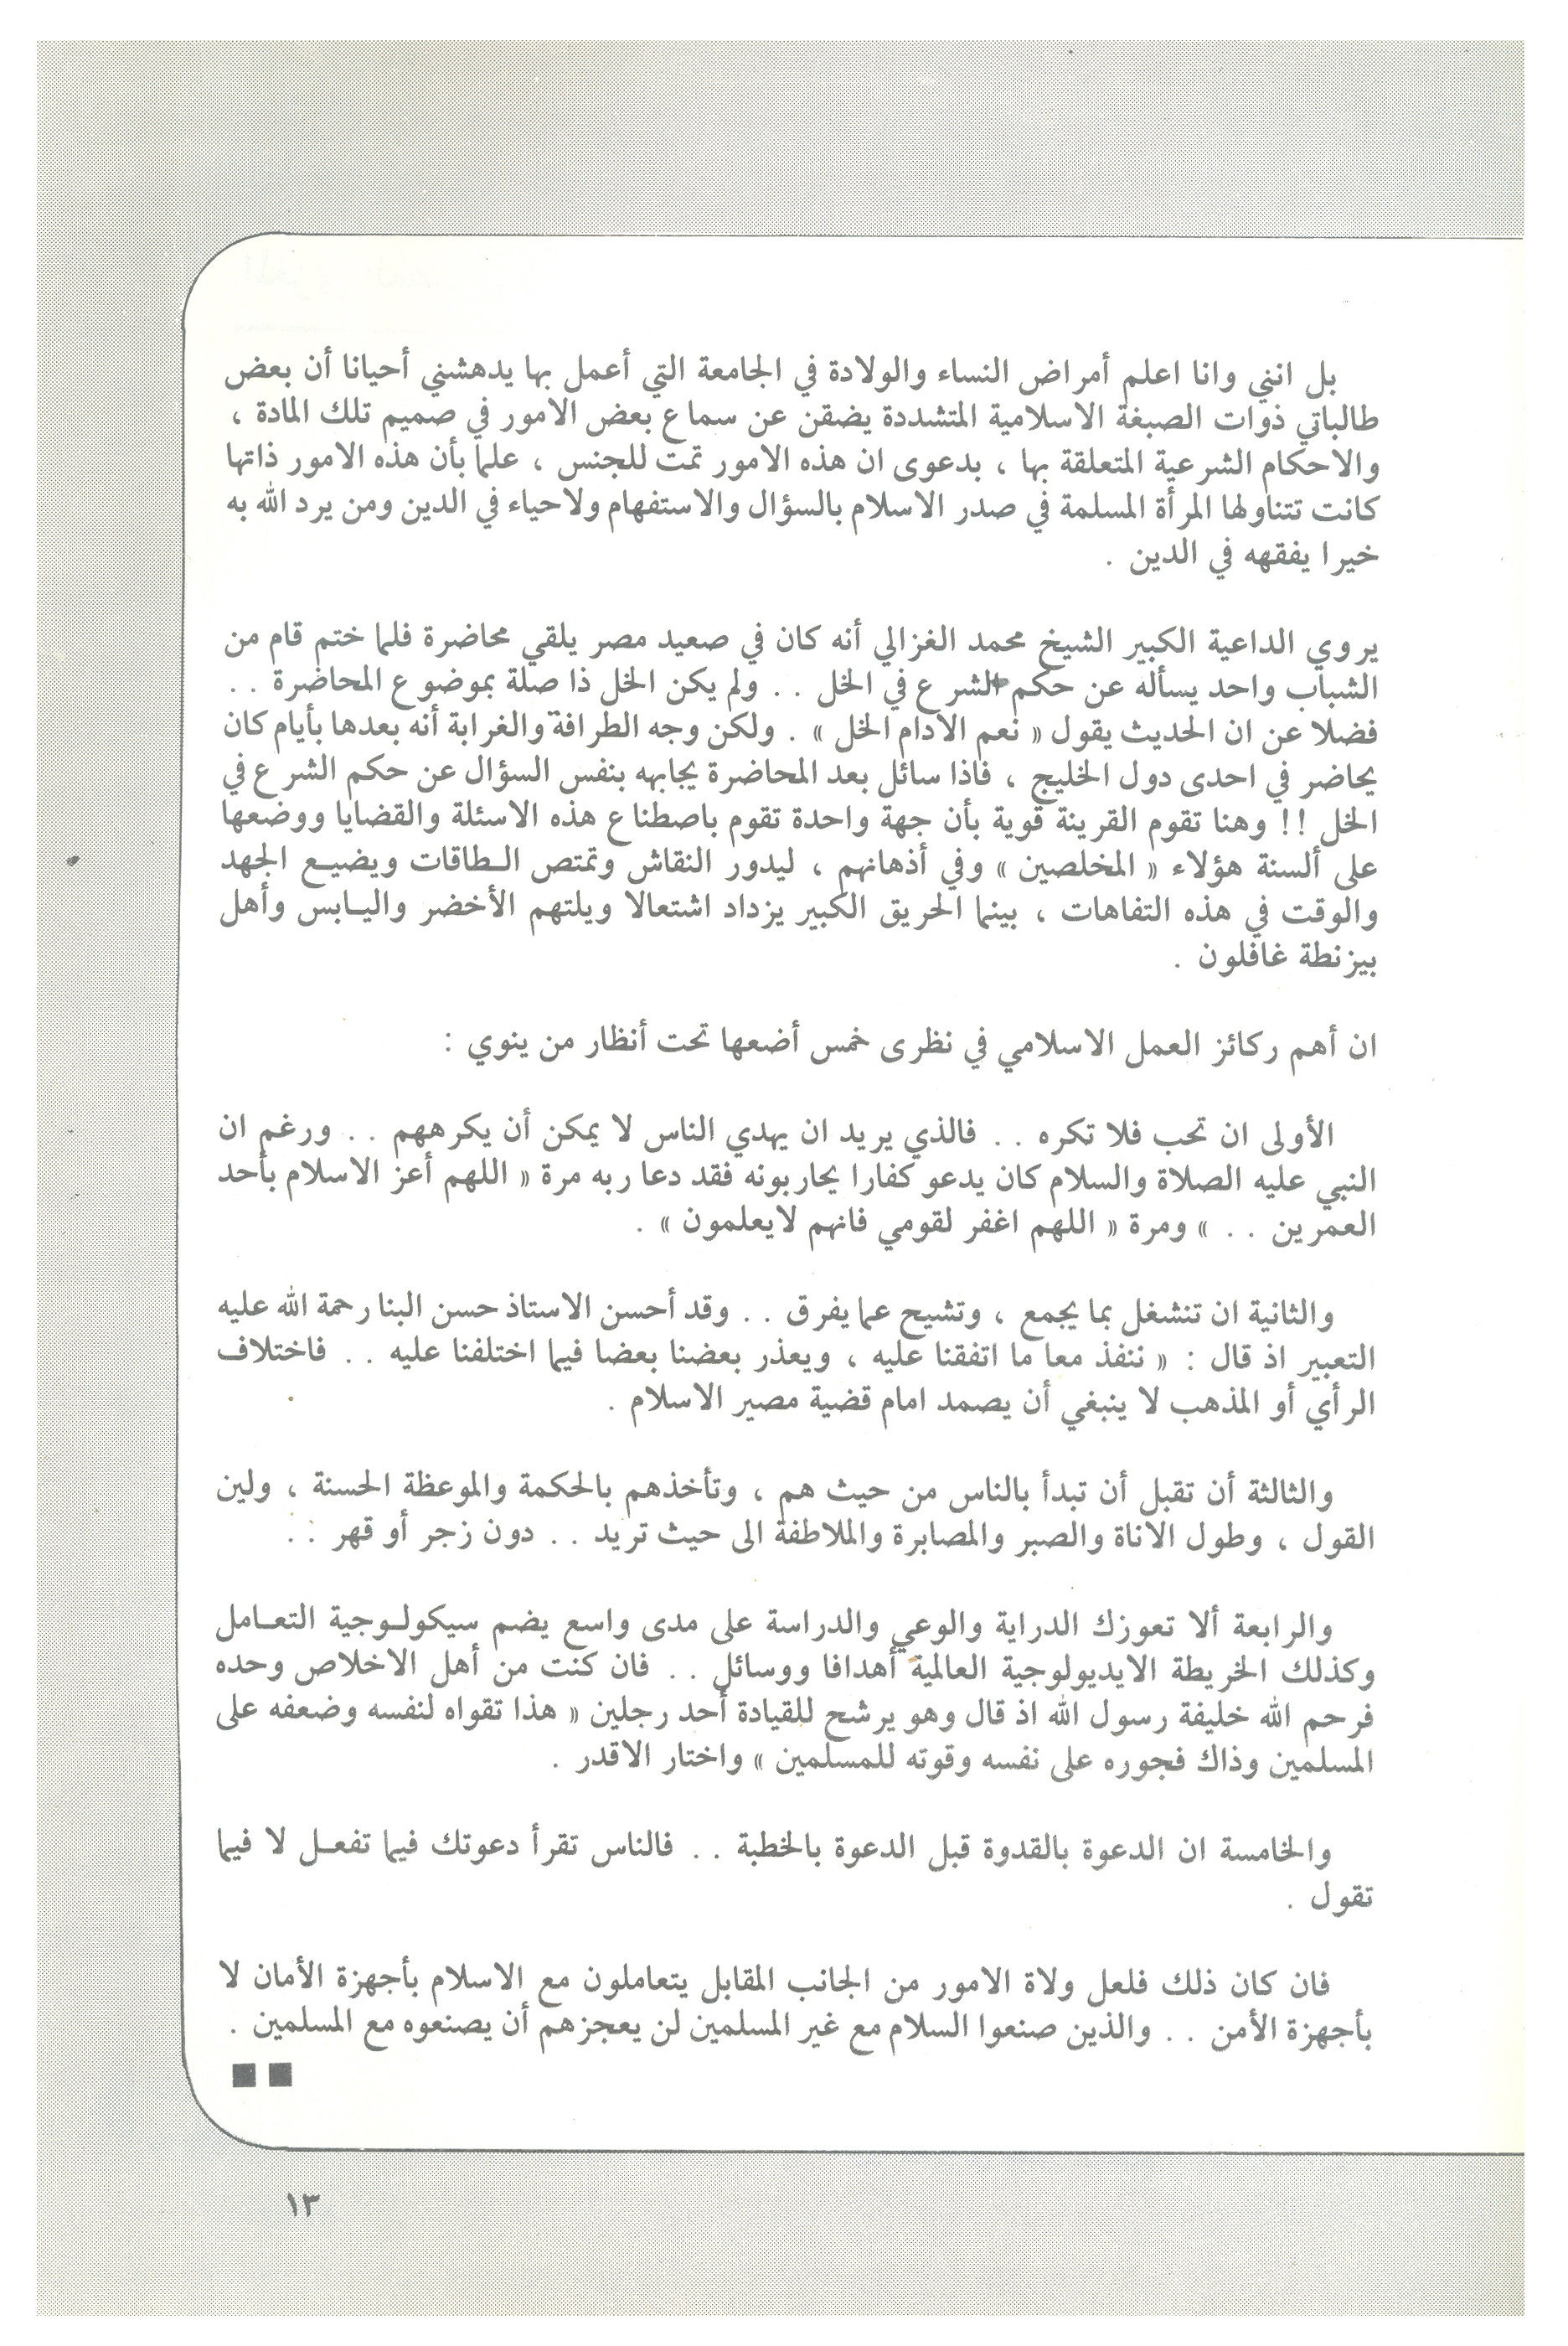 بل انني وانا اعلم أمراض النساء والولادة في الجامعة التي أعمل بها يدهشني أحيانا أن بعض
طالباتي ذوات الصبغة الاسلامية المتشددة يضقن عن سماع بعض الامور في صميم تلك المادة ،
والاحكام الشرعية المتعلقة بها ، بدعوى ان هذه الامور تمت للجنس ، علما بأن هذه الامور ذاتها
كانت تتناولها المرأة المسلمة في صدر الاسلام بالسؤال والاستفهام ولاحياء في الدين ومن يرد الله به
خيرا يفقهه في الدين .
يروي الداعية الكبير الشيخ محمد الغزالي أنه كان في صعيد مصر يلقي محاضرة فلما ختم قام من
الشباب واحد يسأله عن حكم الشرع في الخل . . ولم يكن الخل ذا صلة بموضوع المحاضرة . .
فضلا عن ان الحديث يقول « نعم الادام الخل » . ولكن وجه الطرافة والغرابة أنه بعدها بأيام كان
يحاضر في احدى دول الخليج ، فاذا سائل بعد المحاضرة يجابهه بنفس السؤال عن حكم الشرع في
الخل !! وهنا تقوم القرينة قوية بأن جهة واحدة تقوم باصطناع هذه الاسئلة والقضايا ووضعها
على ألسنة هؤلاء « المخلصين » وفي أذهانهم ، ليدور النقاش وتمتص الطاقات ويضيع الجهد
والوقت في هذه التفاهات ، بينما الحريق الكبير يزداد اشتعالا ويلتهم الأخضر واليابس وأهل
بيزنطة غافلون .
ان أهم ركائز العمل الاسلامي في نظرى خمس أضعها تحت أنظار من ينوي :
الأولى ان تحب فلا تكره . . فالذي يريد ان يهدي الناس لا يمكن أن يكرههم . . ورغم ان
النبي عليه الصلاة والسلام كان يدعو كفارا يحاربونه فقد دعا ربه مرة « اللهم أعز الاسلام بأحد
العمرين . . » ومرة « اللهم اغفر لقومي فانهم لايعلمون » .
والثانية ان تنشغل بما يجمع ، وتشيح عما يفرق . . وقد أحسن الاستاذ حسن البنا رحمة الله عليه
التعبير اذ قال : « ننفذ معا ما اتفقنا عليه ، ويعذر بعضنا بعضا فيما اختلفنا عليه . . فاختلاف
الرأي أو المذهب لا ينبغي أن يصمد امام قضية مصير الاسلام .
والثالثة أن تقبل أن تبدأ بالناس من حيث هم ، وتأخذهم بالحكمة والموعظة الحسنة ، ولين
القول ، وطول الاناة والصبر والمصابرة والملاطفة الى حيث تريد . . دون زجر أو قهر . .
والرابعة ألا تعوزك الدراية والوعي والدراسة على مدى واسع يضم سيكولوجية التعامل
وكذلك الخريطة الايديولوجية العالمية أهدافا ووسائل . . فان كنت من أهل الاخلاص وحده
فرحم الله خليفة رسول الله اذ قال وهو يرشح للقيادة أحد رجلين « هذا تقواه لنفسه وضعفه على
المسلمين وذاك فجوره على نفسه وقوته للمسلمين » واختار الاقدر .
والخامسة ان الدعوة بالقدوة قبل الدعوة بالخطبة . . فالناس تقرأ دعوتك فيما تفعل لا فيما
تقول .
فان كان ذلك فلعل ولاة الامور من الجانب المقابل يتعاملون مع الاسلام بأجهزة الأمان لا
بأجهزة الأمن . . والذين صنعوا السلام مع غير المسلمين لن يعجزهم أن يصنعوه مع المسلمين .
١٣